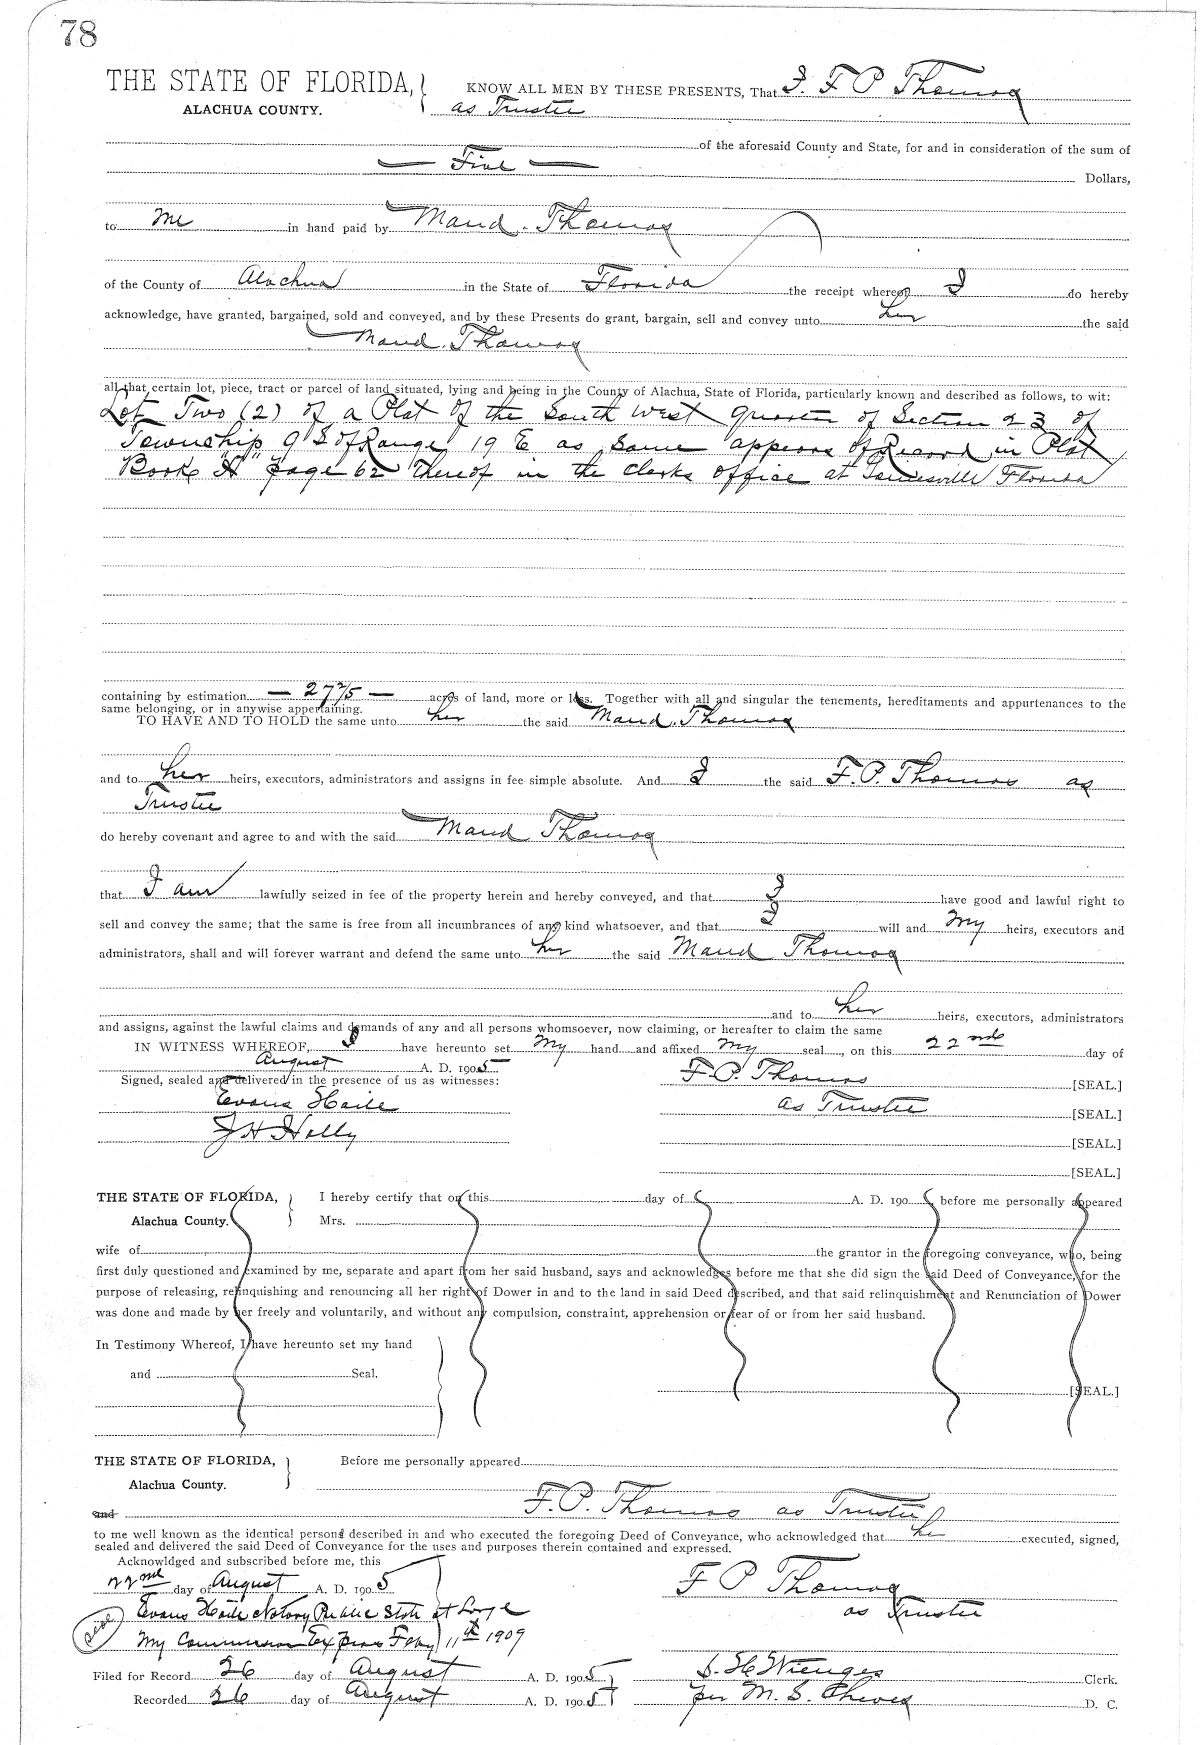 78
THE STATE OF FLORIDA, KNOW ALL MEN BY THESE PRESENTS, That I. F P Thomas
ALACHUA COUNTY. as Trustee
of the aforesaid County and State, for and in consideration of the sum of
— Five — Dollars,
to me in hand paid by Maud Thomas
of the County of Alachua in the State of Florida the receipt whereof I do hereby
acknowledge, have granted, bargained, sold and conveyed, and by these Presents do grant, bargain, sell and convey unto her the said
Maud Thomas
all that certain lot, piece, tract or parcel of land situated, lying and being in the County of Alachua, State of Florida, particularly known and described as follows, to wit:
Lot Two (2) of a Plat of the South West quarter of Section 23 of
Township 9 S of Range 19 E as same appears of Record in Plat
Book "A" page 62 thereof in the clerks office at Gainesville Florida
containing by estimation — 27 2/5 — acres of land, more or less. Together with all and singular the tenements, hereditaments and appurtenances to the
same belonging, or in anywise appertaining.
TO HAVE AND TO HOLD the same unto her the said Maud Thomas
and to her heirs, executors, administrators and assigns in fee simple absolute. And I the said F. P. Thomas as
Trustee
do hereby covenant and agree to and with the said Maud Thomas
that I am lawfully seized in fee of the property herein and hereby conveyed, and that I have good and lawful right to
sell and convey the same; that the same is free from all incumbrances of any kind whatsoever, and that I will and my heirs, executors and
administrators, shall and will forever warrant and defend the same unto her the said Maud Thomas
and to her heirs, executors, administrators
and assigns, against the lawful claims and demands of any and all persons whomsoever, now claiming, or hereafter to claim the same
IN WITNESS WHEREOF, I have hereunto set my hand and affixed my seal, on this 22nd day of
August A. D. 1905 F. P. Thomas [SEAL.]
Signed, sealed and delivered in the presence of us as witnesses:
Evans Haile as Trustee [SEAL.]
J H Holly [SEAL.]
[SEAL.]
THE STATE OF FLORIDA, I hereby certify that on this day of A. D. 190 before me personally appeared
Alachua County. Mrs.
wife of the grantor in the foregoing conveyance, who, being
first duly questioned and examined by me, separate and apart from her said husband, says and acknowledges before me that she did sign the said Deed of Conveyance, for the
purpose of releasing, relinquishing and renouncing all her right of Dower in and to the land in said Deed described, and that said relinquishment and Renunciation of Dower
was done and made by her freely and voluntarily, and without any compulsion, constraint, apprehension or fear of or from her said husband.
In Testimony Whereof, I have hereunto set my hand
and Seal.
[SEAL.]
THE STATE OF FLORIDA, Before me personally appeared
Alachua County.
and F. P. Thomas as Trustee
to me well known as the identical person described in and who executed the foregoing Deed of Conveyance, who acknowledged that he executed, signed,
sealed and delivered the said Deed of Conveyance for the uses and purposes therein contained and expressed.
Acknowldged and subscribed before me, this
22nd day of August A. D. 1905 F P Thomas
Evans Haile Notary Public State at Large as Trustee
Seal My Commission Expires Feby 11th 1909
Filed for Record 26 day of August A. D. 1905 S. H. Wienges Clerk.
Recorded 26 day of August A. D. 1905 per M. S. Cheves D. C.